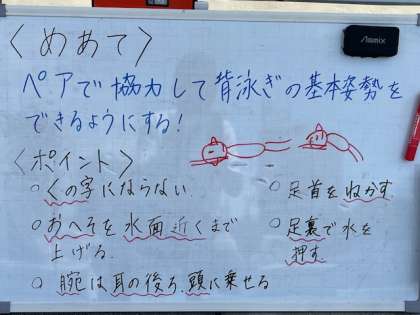 Asmix
〈めあて〉
ペアで協力して背泳ぎの基本姿勢を
できるようにする!
〈ポイント〉
○くの字にならない
○おへそを水面近くまで
上げる
○腕は耳の後ろ、頭に乗せる
○足首をねかす
○足裏で水を
押す